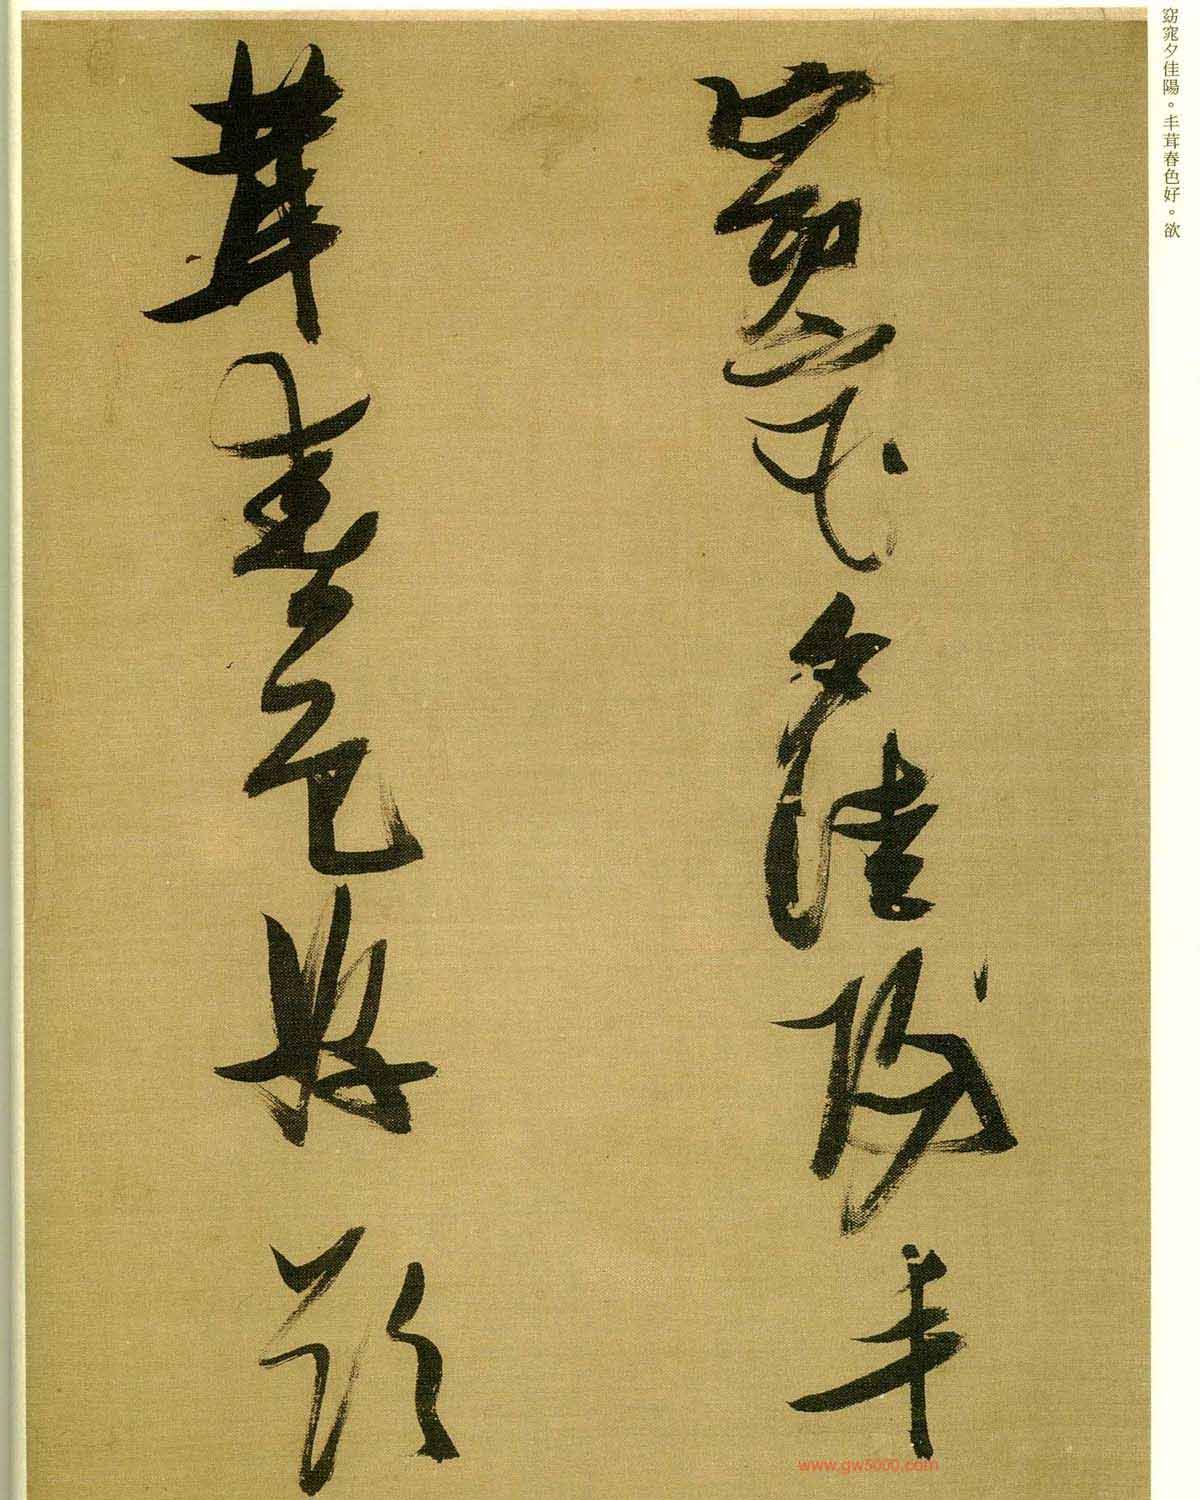 窈窕夕佳陽丰
茸春色好欲
窈窕夕佳陽。丰茸春色好。欲
www.gw5000.com